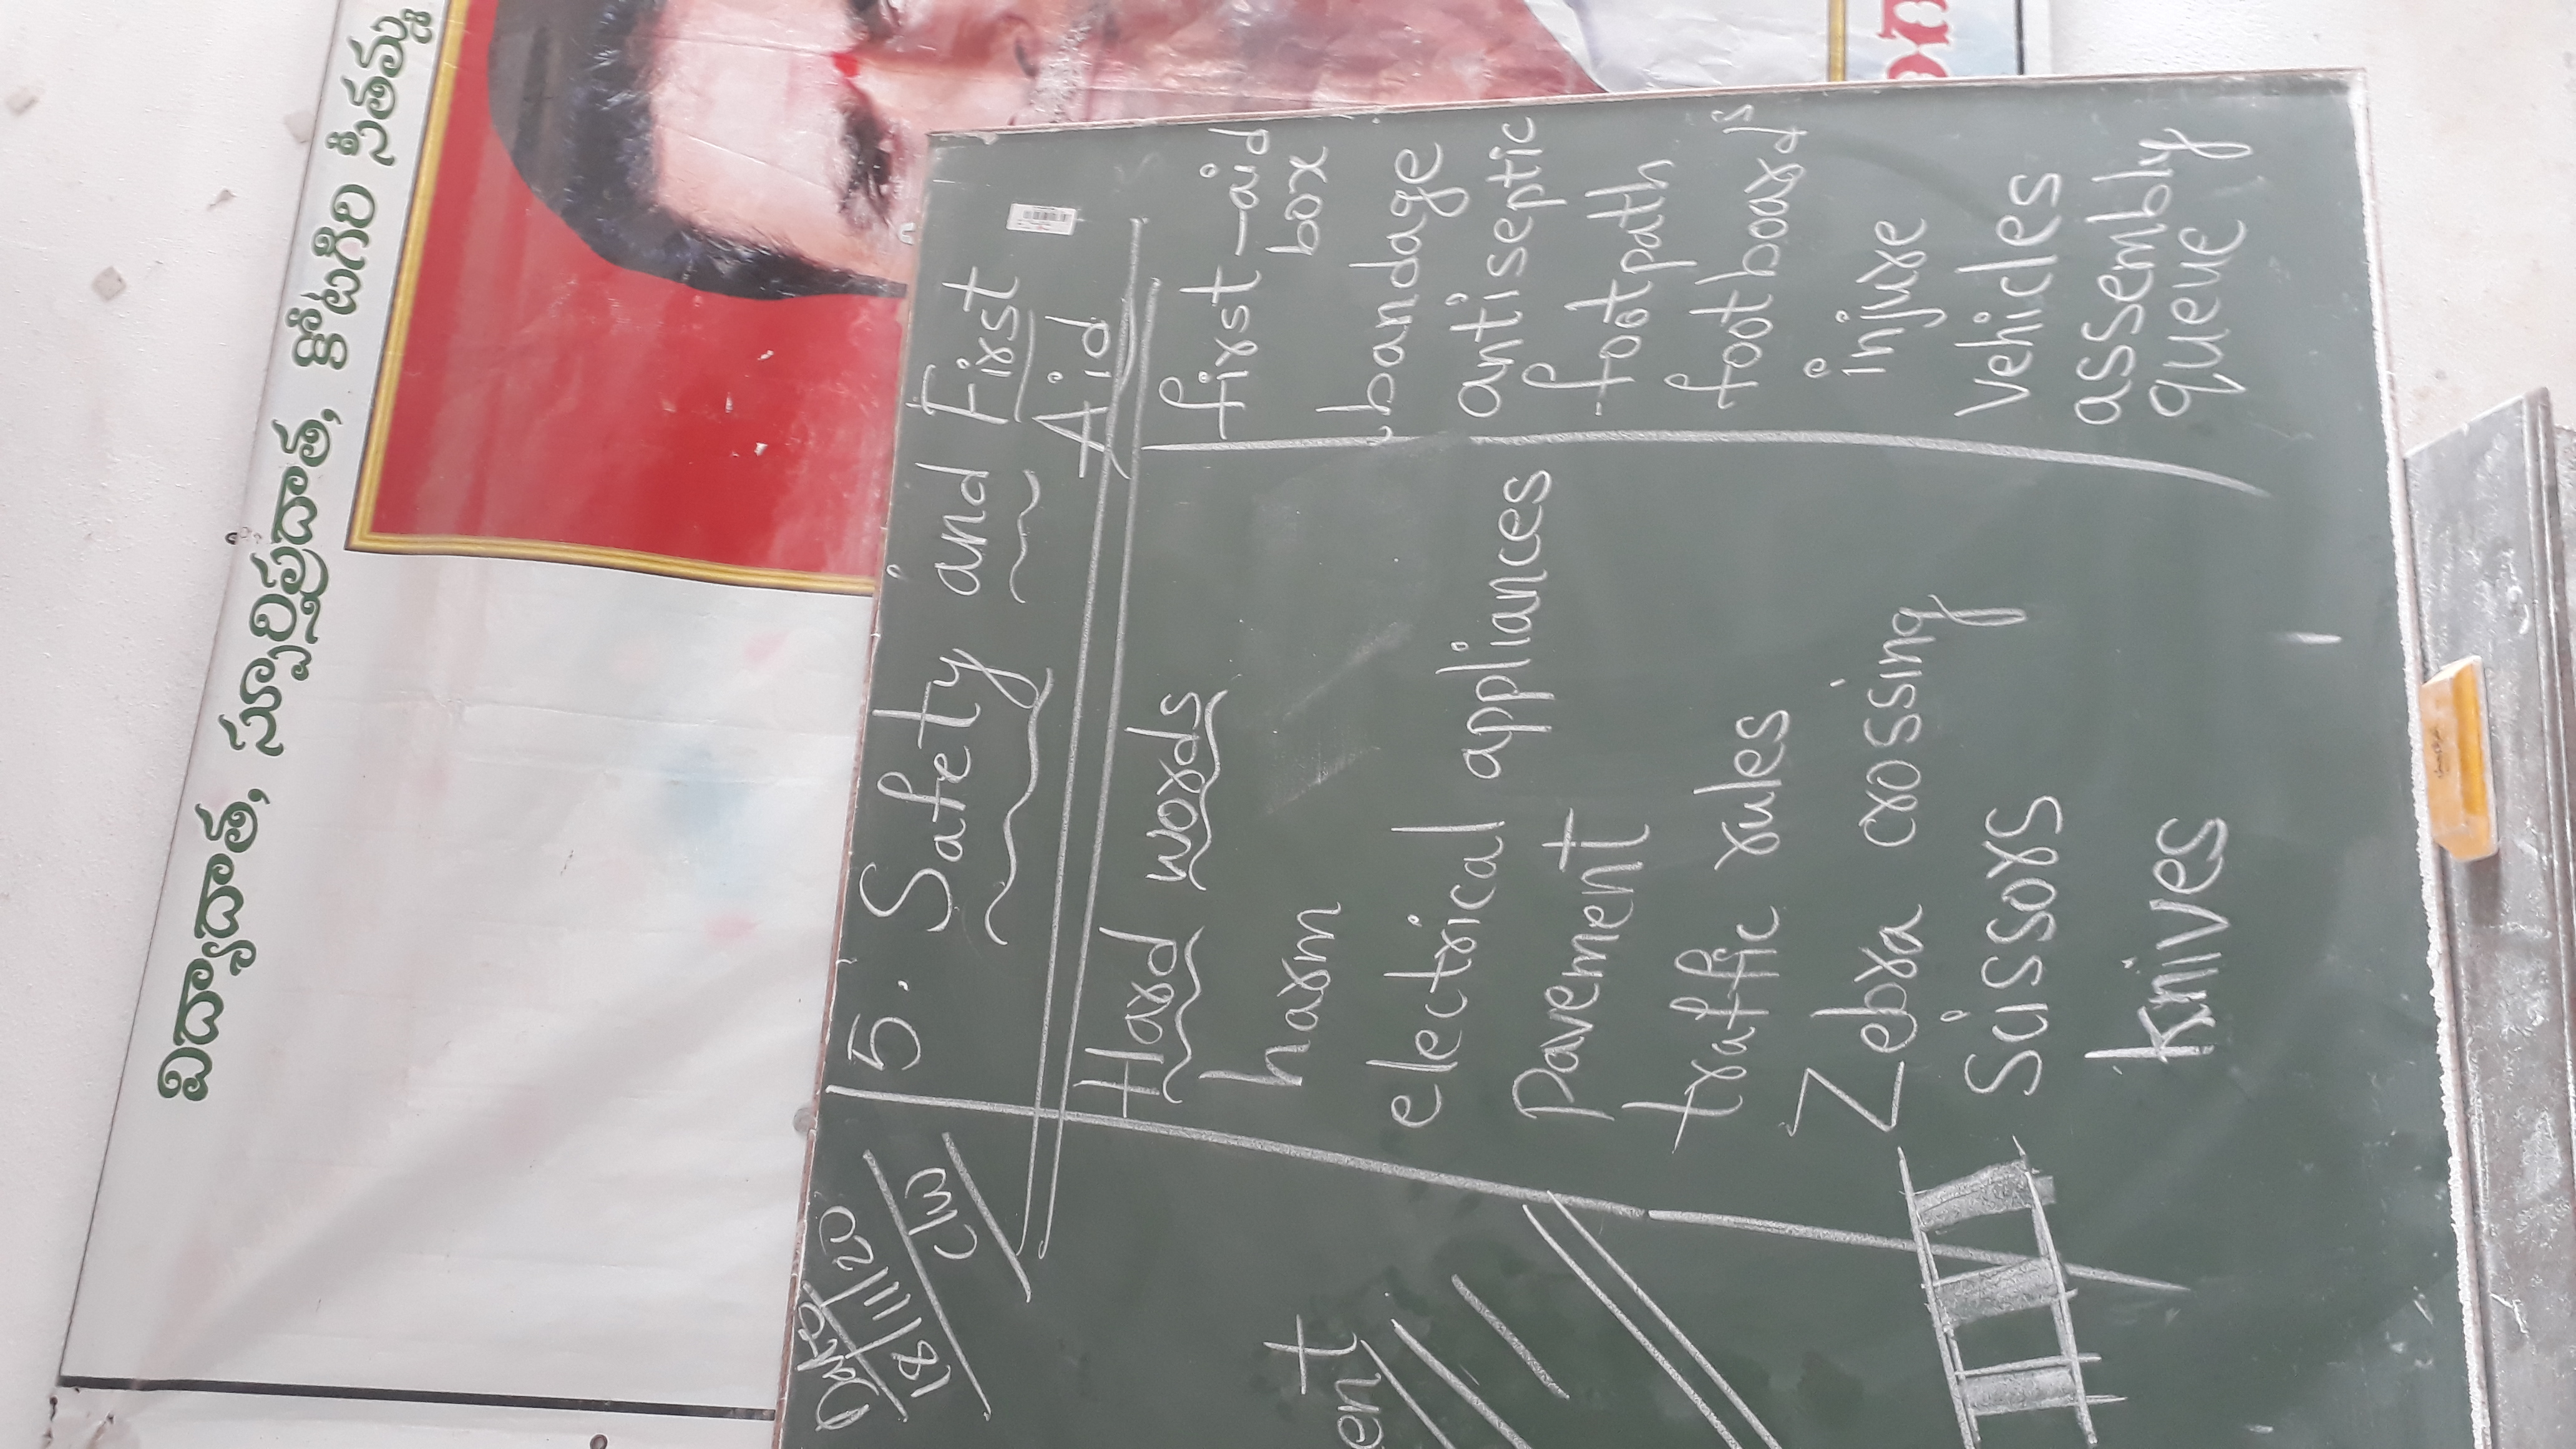 విద్యాదాత, స్పూర్తిప్రదాత, కోటగిరి సీతమ్మ
Date
18/11/20
C/W
5. Safety and First
Aid
Hard words
harm
electrical appliances
pavement
traffic rules
Zebra crossing
Scissors
knives
first-aid
box
bandage
antiseptic
footpath
footboards
injure
Vehicles
assembly
queue
ent